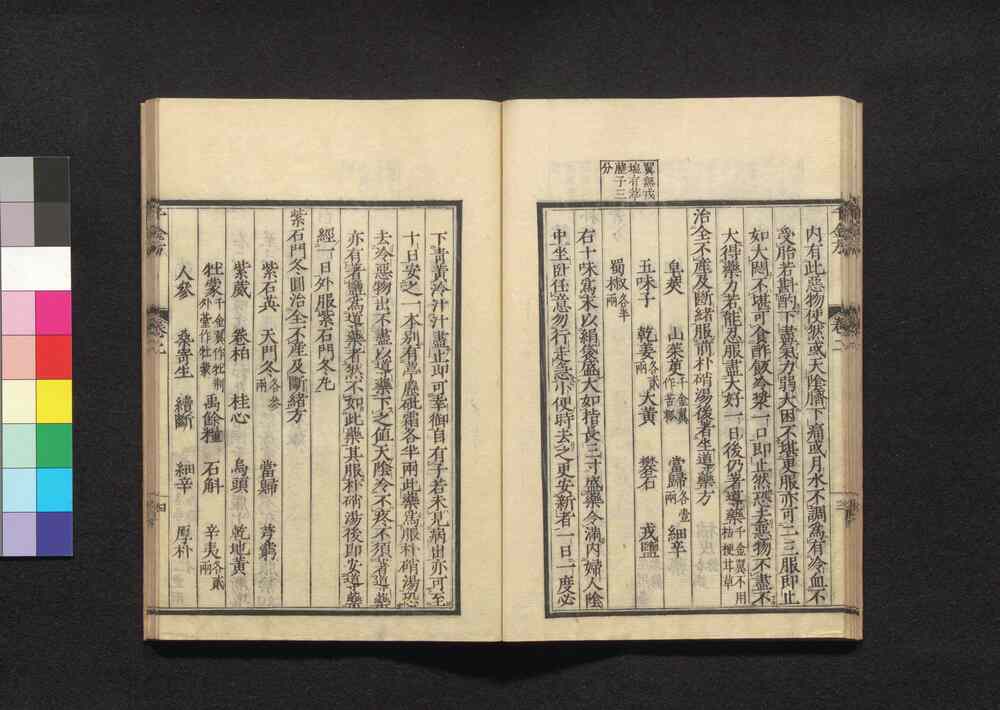 内有此惡物使然或天陰臍下痛或月水不調爲有冷血不
受胎若斟酌下盡氣力弱大困不堪更服亦可二三服即止
如大悶不堪可食酢飯冷漿一口即止然恐去惡物不盡不
大得藥力若能忍服盡大好一日後仍著導藥千金翼不用桔梗甘草
治全不產及斷緒服前朴硝湯後著坐導藥方
皁莢 山茱萸千金翼作苦瓠 當歸各壹兩 細辛
五味子 乾姜各貳兩 大黃 礬石 戎鹽
蜀椒各半兩
翼無戎鹽有葶藶子三分
右十味爲末以絹袋盛大如指長三寸盛藥令滿内婦人陰
中坐卧任意勿行走急小便時去之更安新者一日一度必
下青黃冷汁汁盡止即可幸御自有子若未見病出亦可至
十日安之一本別有葶藶砒霜各半兩此藥爲服朴硝湯恐
去冷惡物出不盡以導藥下之值天陰冷不疼不須著導藥
亦有著鹽爲導藥者然不如此藥其服朴硝湯後即安導藥
經一日外服紫石門冬丸
紫石門冬圓治全不產及斷緒方
紫石英 天門冬各參兩 當歸 芎藭
紫葳 卷柏 桂心 烏頭 乾地黃
牡蒙千金翼作牡荆外臺作牡蒙 禹餘糧 石斛 辛夷各貳兩
人參 桑寄生 續斷 細辛 厚朴